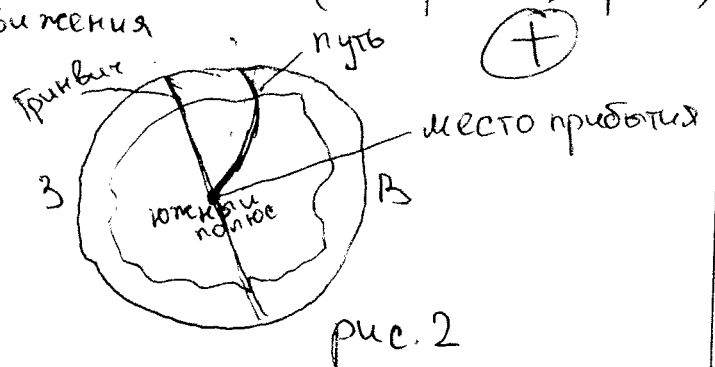 путь
Гринвич
место прибытия
З
В
южный
полюс
рис. 2